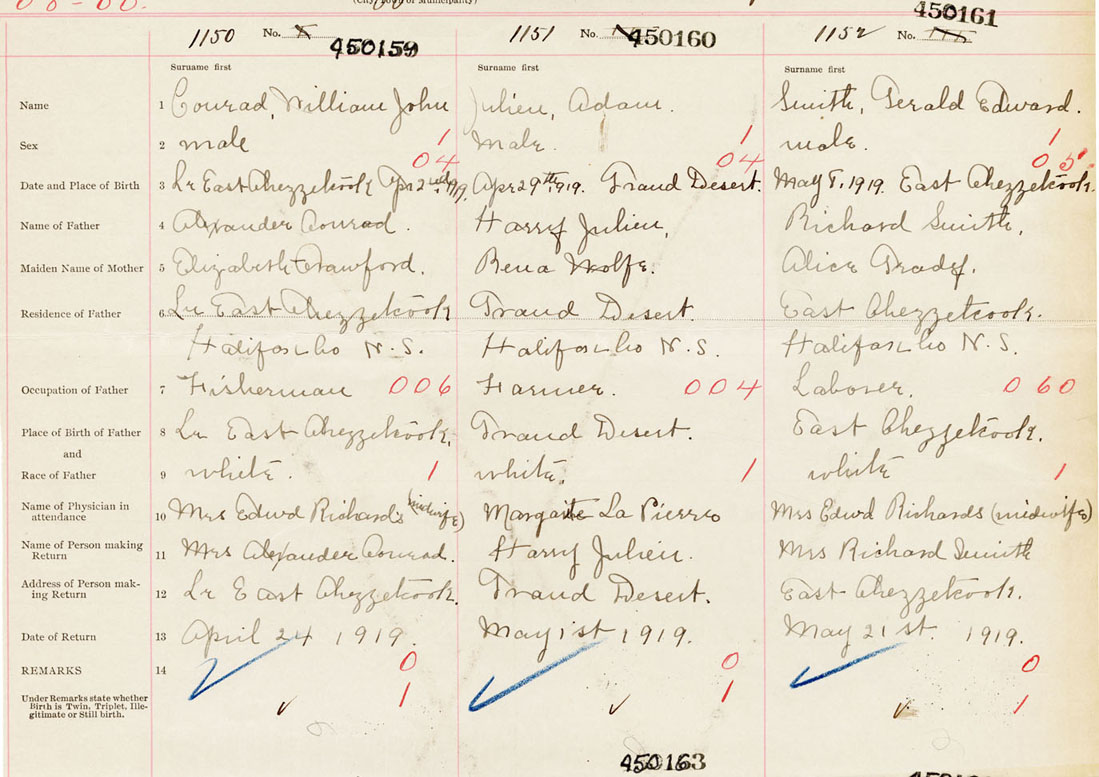 (City, Town or Municipality)
1150 No. 450159
1151 No. 450160
1152 No. 450161
Surname first
Surname first
Surname first
Name 1 Conrad, William John
Julien, Adam.
Smith, Gerald Edward.
Sex 2 male 1
Male. 1
male. 1
04
04
05
Date and Place of Birth 3 Lr East Chezzetcook Apr 22nd 1919.
Apr 29th 1919. Grand Desert.
May 8, 1919. East Chezzetcook.
Name of Father 4 Alexander Conrad.
Harry Julien,
Richard Smith,
Maiden Name of Mother 5 Elizabeth Crawford.
Bena Wolfe.
Alice Grady.
Residence of Father 6 Lr East Chezzetcook
Grand Desert.
East Chezzetcook.
Halifax Co N.S.
Halifax Co N.S.
Halifax Co N.S.
Occupation of Father 7 Fisherman 006
Farmer. 004
Laborer. 060
Place of Birth of Father 8 Lr East Chezzetcook,
Grand Desert.
East Chezzetcook.
and
Race of Father 9 white. 1
white. 1
white 1
Name of Physician in
attendance 10 Mrs Edwd Richards (midwife)
Margarite La Pierre
Mrs Edwd Richards (midwife)
Name of Person making
Return 11 Mrs Alexander Conrad.
Harry Julien.
Mrs Richard Smith
Address of Person mak-
ing Return 12 Lr East Chezzetcook.
Grand Desert.
East Chezzetcook.
Date of Return 13 April 24 1919.
May 1st 1919.
May 21st. 1919.
REMARKS 14 0
0
0
Under Remarks state whether
Birth is Twin, Triplet, Ille-
gitimate or Still birth.
1
1
1
450163